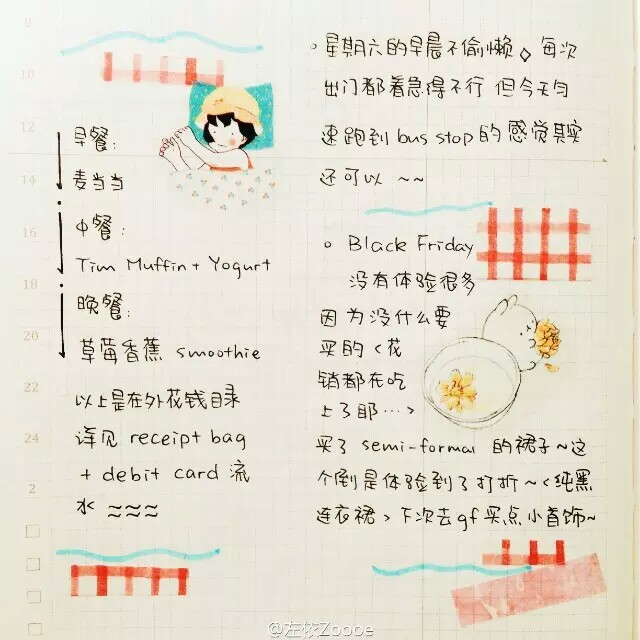 8
10
12
14
16
18
20
22
24
2
早餐:
麦当当
中餐:
Tim Muffin + Yogurt
晚餐:
草莓香蕉 smoothie
以上是在外花钱目录
详见 receipt bag
+ debit card 流
水 ≈≈≈
。星期六的早晨不偷懒。每次
出门都着急得不行 但今天匀
速跑到 bus stop 的感觉其实
还可以 ~~
。Black Friday
没有体验很多
因为没什么要
买的〈花
销都在吃
上了耶…〉
买了 semi-formal 的裙子~这
个倒是体验到了打折~〈纯黑
连衣裙〉下次去gf买点小首饰~
@左依Zoooe